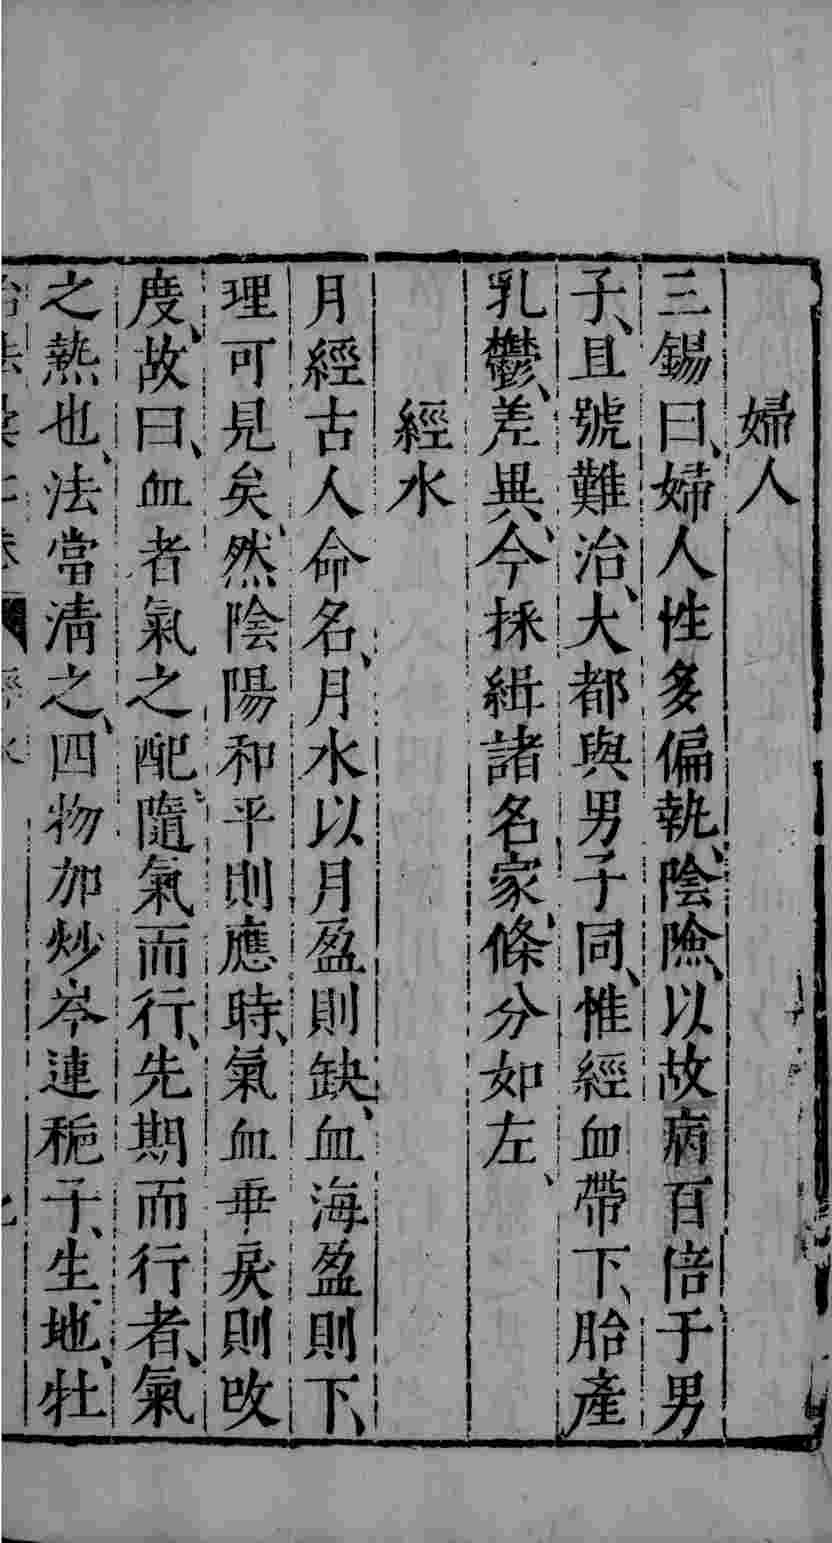 婦人
三錫曰、婦人性多偏執、陰險、以故病百倍于男
子、且號難治、大都與男子同、惟經血帶下、胎產
乳鬱、差異、今採緝諸名家、條分如左、
經水
月經古人命名、月水以月盈則缺、血海盈則下、
理可見矣、然陰陽和平則應時、氣血乖戾則改
度、故曰、血者氣之配、隨氣而行、先期而行者、氣
之熱也、法當清之、四物加炒岑連梔子、生地、牡
治法彙二卷 經水